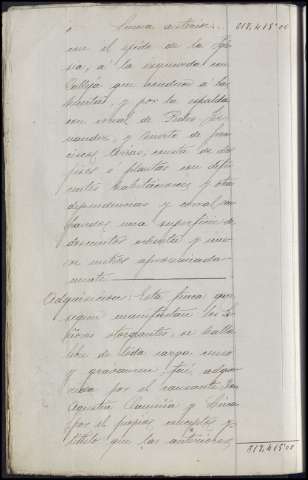 218,415'00
con el ejido de la Igle-
sia, á la izquierda con
calleja que conduce á los
huertos, y por la espalda
con casa de Pedro Fer-
nandez, y huerto de Fran-
cisco; consta de dos
pisos o plantas con dife-
rentes habitaciones y otras
dependencias y corral,
una superficie de
doscientos ochenta y nue-
ve metros aproximada-
mente
Adquisicion: Esta finca que
segun manifiestan los Se-
ñores otorgantes, se halla
libre de toda carga, censo
y gravamen, fué adqui-
rida por el causante Don
Agustin y
por el propio concepto y
título que las anteriores,
218,415'00